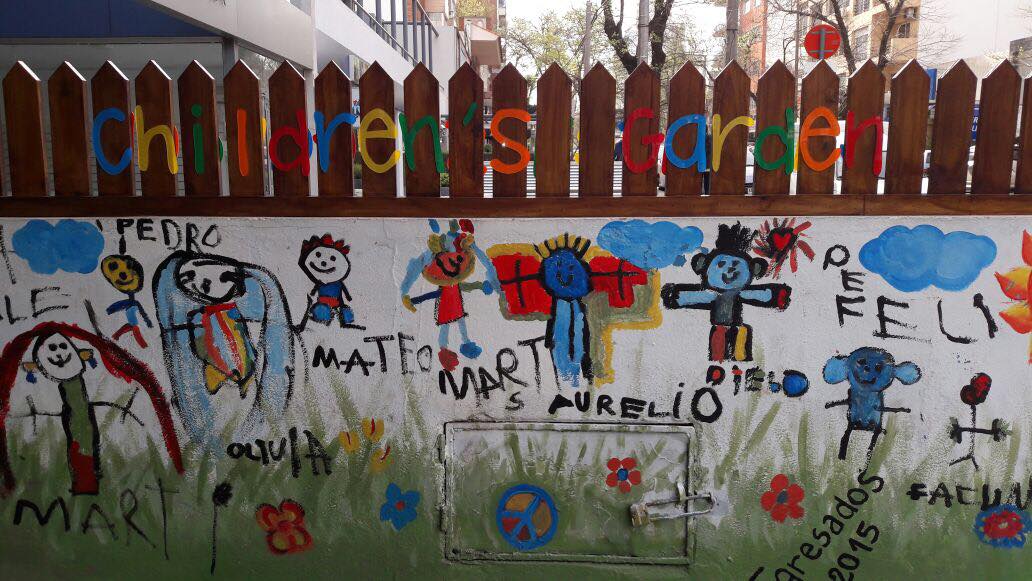 Children's Garden
PEDRO
LLE
MATEO
MART
S
AURELIO
DIEGO
PE
F
FELI
OLIVIA
MART
FACUN
Egresados
2015